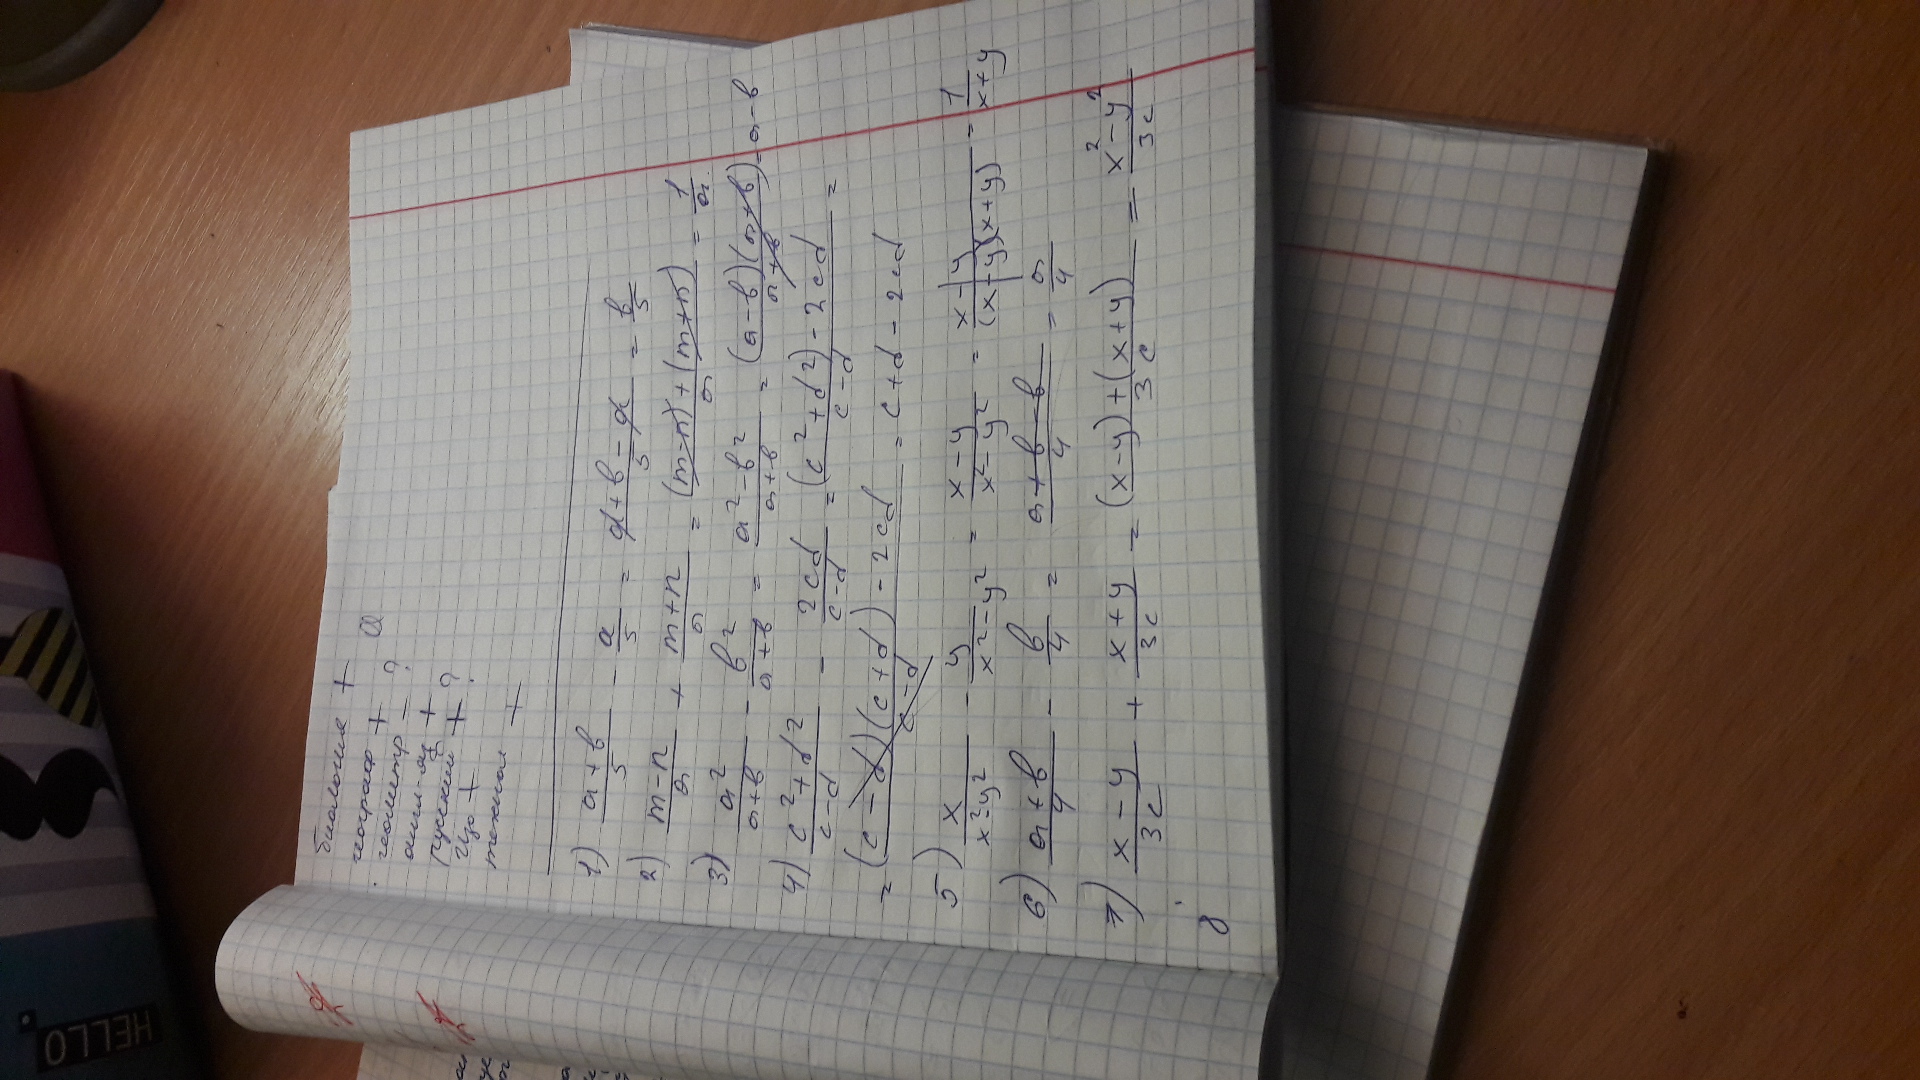 биология +
географ +
геометр – ?
англ-яз +
Русский + ?
Изо +
технол +
1) (a+b)/5 - a/5 = (a+b-a)/5 = b/5
2) (m-n)/a + (m+n)/a = ((m-n)+(m+n))/a = 1/a
3) a²/(a+b) - b²/(a+b) = (a²-b²)/(a+b) = (a-b)(a+b)/(a+b) = a-b
4) (c²+d²)/(c-d) - 2cd/(c-d) = ((c²+d²)-2cd)/(c-d) =
= ((c-d)(c+d)-2cd)/(c-d) = c+d-2cd
5) x/(x²-y²) - y/(x²-y²) = (x-y)/(x²-y²) = (x-y)/((x-y)(x+y)) = 1/(x+y)
6) (a+b)/4 - b/4 = (a+b-b)/4 = a/4
7) (x-y)/3c + (x+y)/3c = ((x-y)+(x+y))/3c = (x²-y²)/3c
8
HELLO